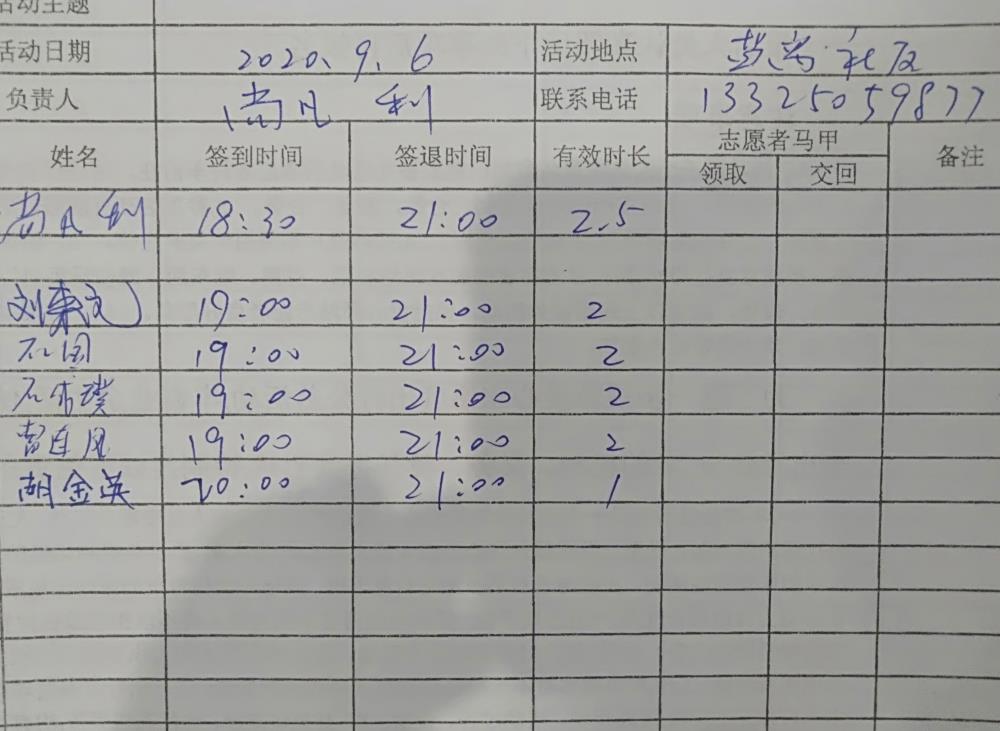 活动主题
活动日期 2020、9、6 活动地点 社区
负责人 尚凡利 联系电话 13325059877
姓名 签到时间 签退时间 有效时长 志愿者马甲 备注
领取 交回
尚凡利 18:30 21:00 2.5
19:00 21:00 2
石国 19:00 21:00 2
19:00 21:00 2
19:00 21:00 2
胡金英 20:00 21:00 1